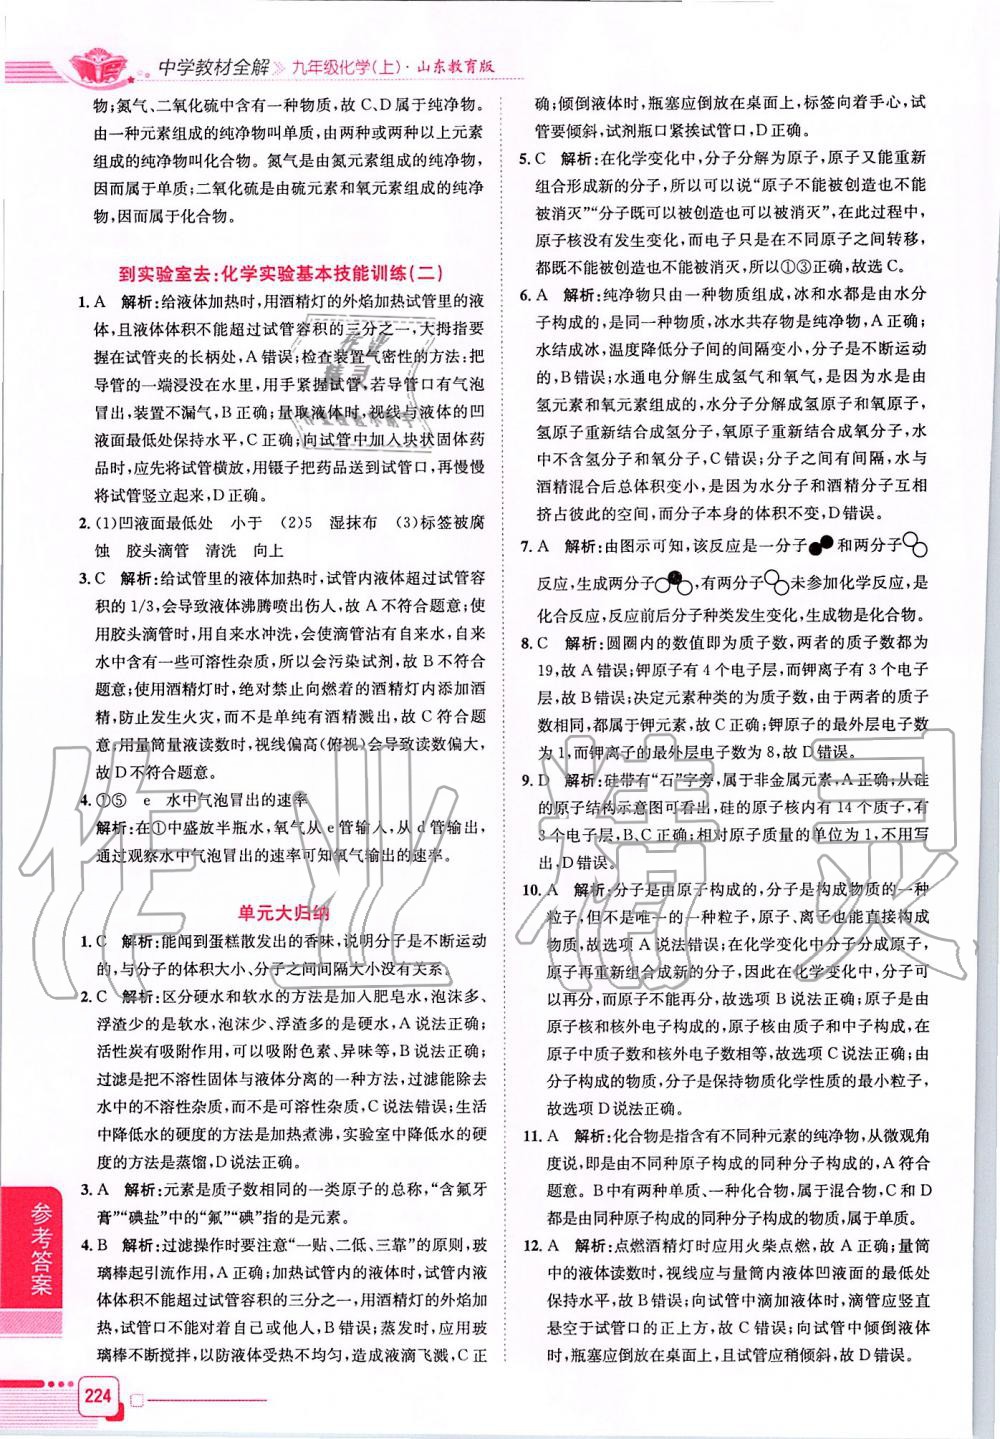 中学教材全解 九年级化学(上)·山东教育版
物;氮气、二氧化硫中含有一种物质,故 C、D 属于纯净物。
由一种元素组成的纯净物叫单质,由两种或两种以上元素
组成的纯净物叫化合物。氮气是由氮元素组成的纯净物,
因而属于单质;二氧化硫是由硫元素和氧元素组成的纯净
物,因而属于化合物。
到实验室去:化学实验基本技能训练(二)
1. A 解析:给液体加热时,用酒精灯的外焰加热试管里的液
体,且液体体积不能超过试管容积的三分之一,大拇指要
握在试管夹的长柄处,A 错误;检查装置气密性的方法:把
导管的一端浸没在水里,用手紧握试管,若导管口有气泡
冒出,装置不漏气,B 正确;量取液体时,视线与液体的凹
液面最低处保持水平,C 正确;向试管中加入块状固体药
品时,应先将试管横放,用镊子把药品送到试管口,再慢慢
将试管竖立起来,D 正确。
2. (1)凹液面最低处 小于 (2)5 湿抹布 (3)标签被腐
蚀 胶头滴管 清洗 向上
3. C 解析:给试管里的液体加热时,试管内液体超过试管容
积的 1/3,会导致液体沸腾喷出伤人,故 A 不符合题意;使
用胶头滴管时,用自来水冲洗,会使滴管沾有自来水,自来
水中含有一些可溶性杂质,所以会污染试剂,故 B 不符合
题意;使用酒精灯时,绝对禁止向燃着的酒精灯内添加酒
精,防止发生火灾,而不是单纯有酒精溅出,故 C 符合题
意;用量筒量液读数时,视线偏高(俯视)会导致读数偏大,
故 D 不符合题意。
4. ①⑤ e 水中气泡冒出的速率
解析:在①中盛放半瓶水,氧气从 e 管输入,从 d 管输出,
通过观察水中气泡冒出的速率可知氧气输出的速率。
单元大归纳
1. C 解析:能闻到蛋糕散发出的香味,说明分子是不断运动
的,与分子的体积大小、分子之间间隔大小没有关系。
2. C 解析:区分硬水和软水的方法是加入肥皂水,泡沫多、
浮渣少的是软水,泡沫少、浮渣多的是硬水,A 说法正确;
活性炭有吸附作用,可以吸附色素、异味等,B 说法正确;
过滤是把不溶性固体与液体分离的一种方法,过滤能除去
水中的不溶性杂质,而不是可溶性杂质,C 说法错误;生活
中降低水的硬度的方法是加热煮沸,实验室中降低水的硬
度的方法是蒸馏,D 说法正确。
3. A 解析:元素是质子数相同的一类原子的总称,“含氟牙
膏”“碘盐”中的“氟”“碘”指的是元素。
4. B 解析:过滤操作时要注意“一贴、二低、三靠”的原则,玻
璃棒起引流作用,A 正确;加热试管内的液体时,试管内液
体体积不能超过试管容积的三分之一,用酒精灯的外焰加
热,试管口不能对着自己或他人,B 错误;蒸发时,应用玻
璃棒不断搅拌,以防液体受热不均匀,造成液滴飞溅,C 正
确;倾倒液体时,瓶塞应倒放在桌面上,标签向着手心,试
管要倾斜,试剂瓶口紧挨试管口,D 正确。
5. C 解析:在化学变化中,分子分解为原子,原子又能重新
组合形成新的分子,所以可以说“原子不能被创造也不能
被消灭”“分子既可以被创造也可以被消灭”,在此过程中,
原子核没有发生变化,而电子只是在不同原子之间转移,
都既不能被创造也不能被消灭,所以①③正确,故选 C。
6. A 解析:纯净物只由一种物质组成,冰和水都是由水分
子构成的,是同一种物质,冰水共存物是纯净物,A 正确;
水结成冰,温度降低分子间的间隔变小,分子是不断运动
的,B 错误;水通电分解生成氢气和氧气,是因为水是由
氢元素和氧元素组成的,水分子分解成氢原子和氧原子,
氢原子重新结合成氢分子,氧原子重新结合成氧分子,水
中不含氢分子和氧分子,C 错误;分子之间有间隔,水与
酒精混合后总体积变小,是因为水分子和酒精分子互相
挤占彼此的空间,而分子本身的体积不变,D 错误。
7. A 解析:由图示可知,该反应是一分子 和两分子
反应,生成两分子 ,有两分子 未参加化学反应,是
化合反应,反应前后分子种类发生变化,生成物是化合物。
8. C 解析:圆圈内的数值即为质子数,两者的质子数都为
19,故 A 错误;钾原子有 4 个电子层,而钾离子有 3 个电子
层,故 B 错误;决定元素种类的为质子数,由于两者的质子
数相同,都属于钾元素,故 C 正确;钾原子的最外层电子数
为 1,而钾离子的最外层电子数为 8,故 D 错误。
9. D 解析:硅带有“石”字旁,属于非金属元素,A 正确;从硅
的原子结构示意图可看出,硅的原子核内有 14 个质子,有
3 个电子层,B、C 正确;相对原子质量的单位为 1,不用写
出,D 错误。
10. A 解析:分子是由原子构成的,分子是构成物质的一种
粒子,但不是唯一的一种粒子,原子、离子也能直接构成
物质,故选项 A 说法错误;在化学变化中分子分成原子,
原子再重新组合成新的分子,因此在化学变化中,分子可
以再分,而原子不能再分,故选项 B 说法正确;原子是由
原子核和核外电子构成的,原子核由质子和中子构成,在
原子中质子数和核外电子数相等,故选项 C 说法正确;由
分子构成的物质,分子是保持物质化学性质的最小粒子,
故选项 D 说法正确。
11. A 解析:化合物是指含有不同种元素的纯净物,从微观角
度说,即是由不同种原子构成的同种分子构成的,A 符合
题意。B 中有两种单质、一种化合物,属于混合物,C 和 D
都是由同种原子构成的同种分子构成的物质,属于单质。
12. A 解析:点燃酒精灯时应用火柴点燃,故 A 正确;量筒
中的液体读数时,视线应与量筒内液体凹液面的最低处
保持水平,故 B 错误;向试管中滴加液体时,滴管应竖直
悬空于试管口的正上方,故 C 错误;向试管中倾倒液体
时,瓶塞应倒放在桌面上,且试管应稍倾斜,故 D 错误。
参考答案
224
作业精灵